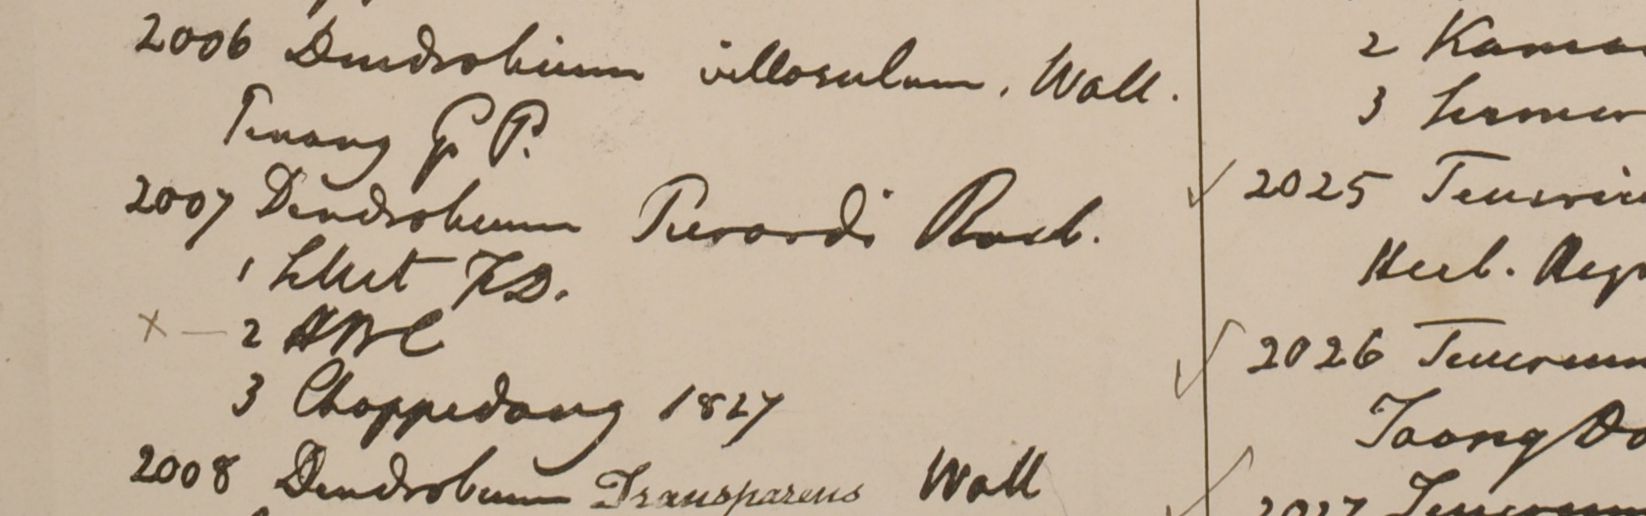 2006 Dendrobium villosulum, Wall.
Penang G P.
2007 Dendrobium Pierardi Roxb.
1 Silhet F.D.
2 HBC
3 Choppedong 1827
2008 Dendrobium Transparens Wall
2 Kamao
3
2025
Herb.
2026 Teucrium
Taong Do
2027 Teucrium